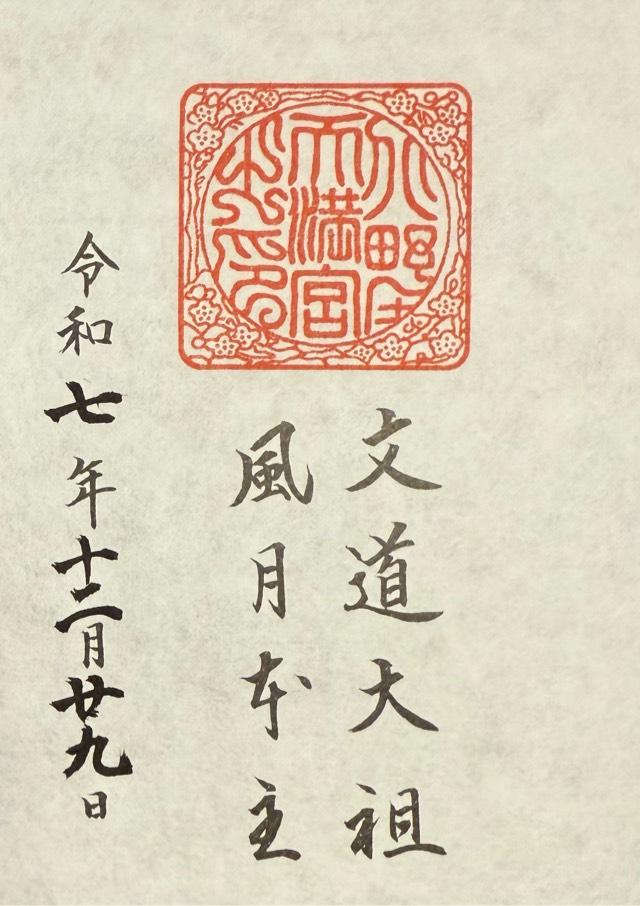 天満宮
文道大祖
風月本主
令和七年十二月廿九日